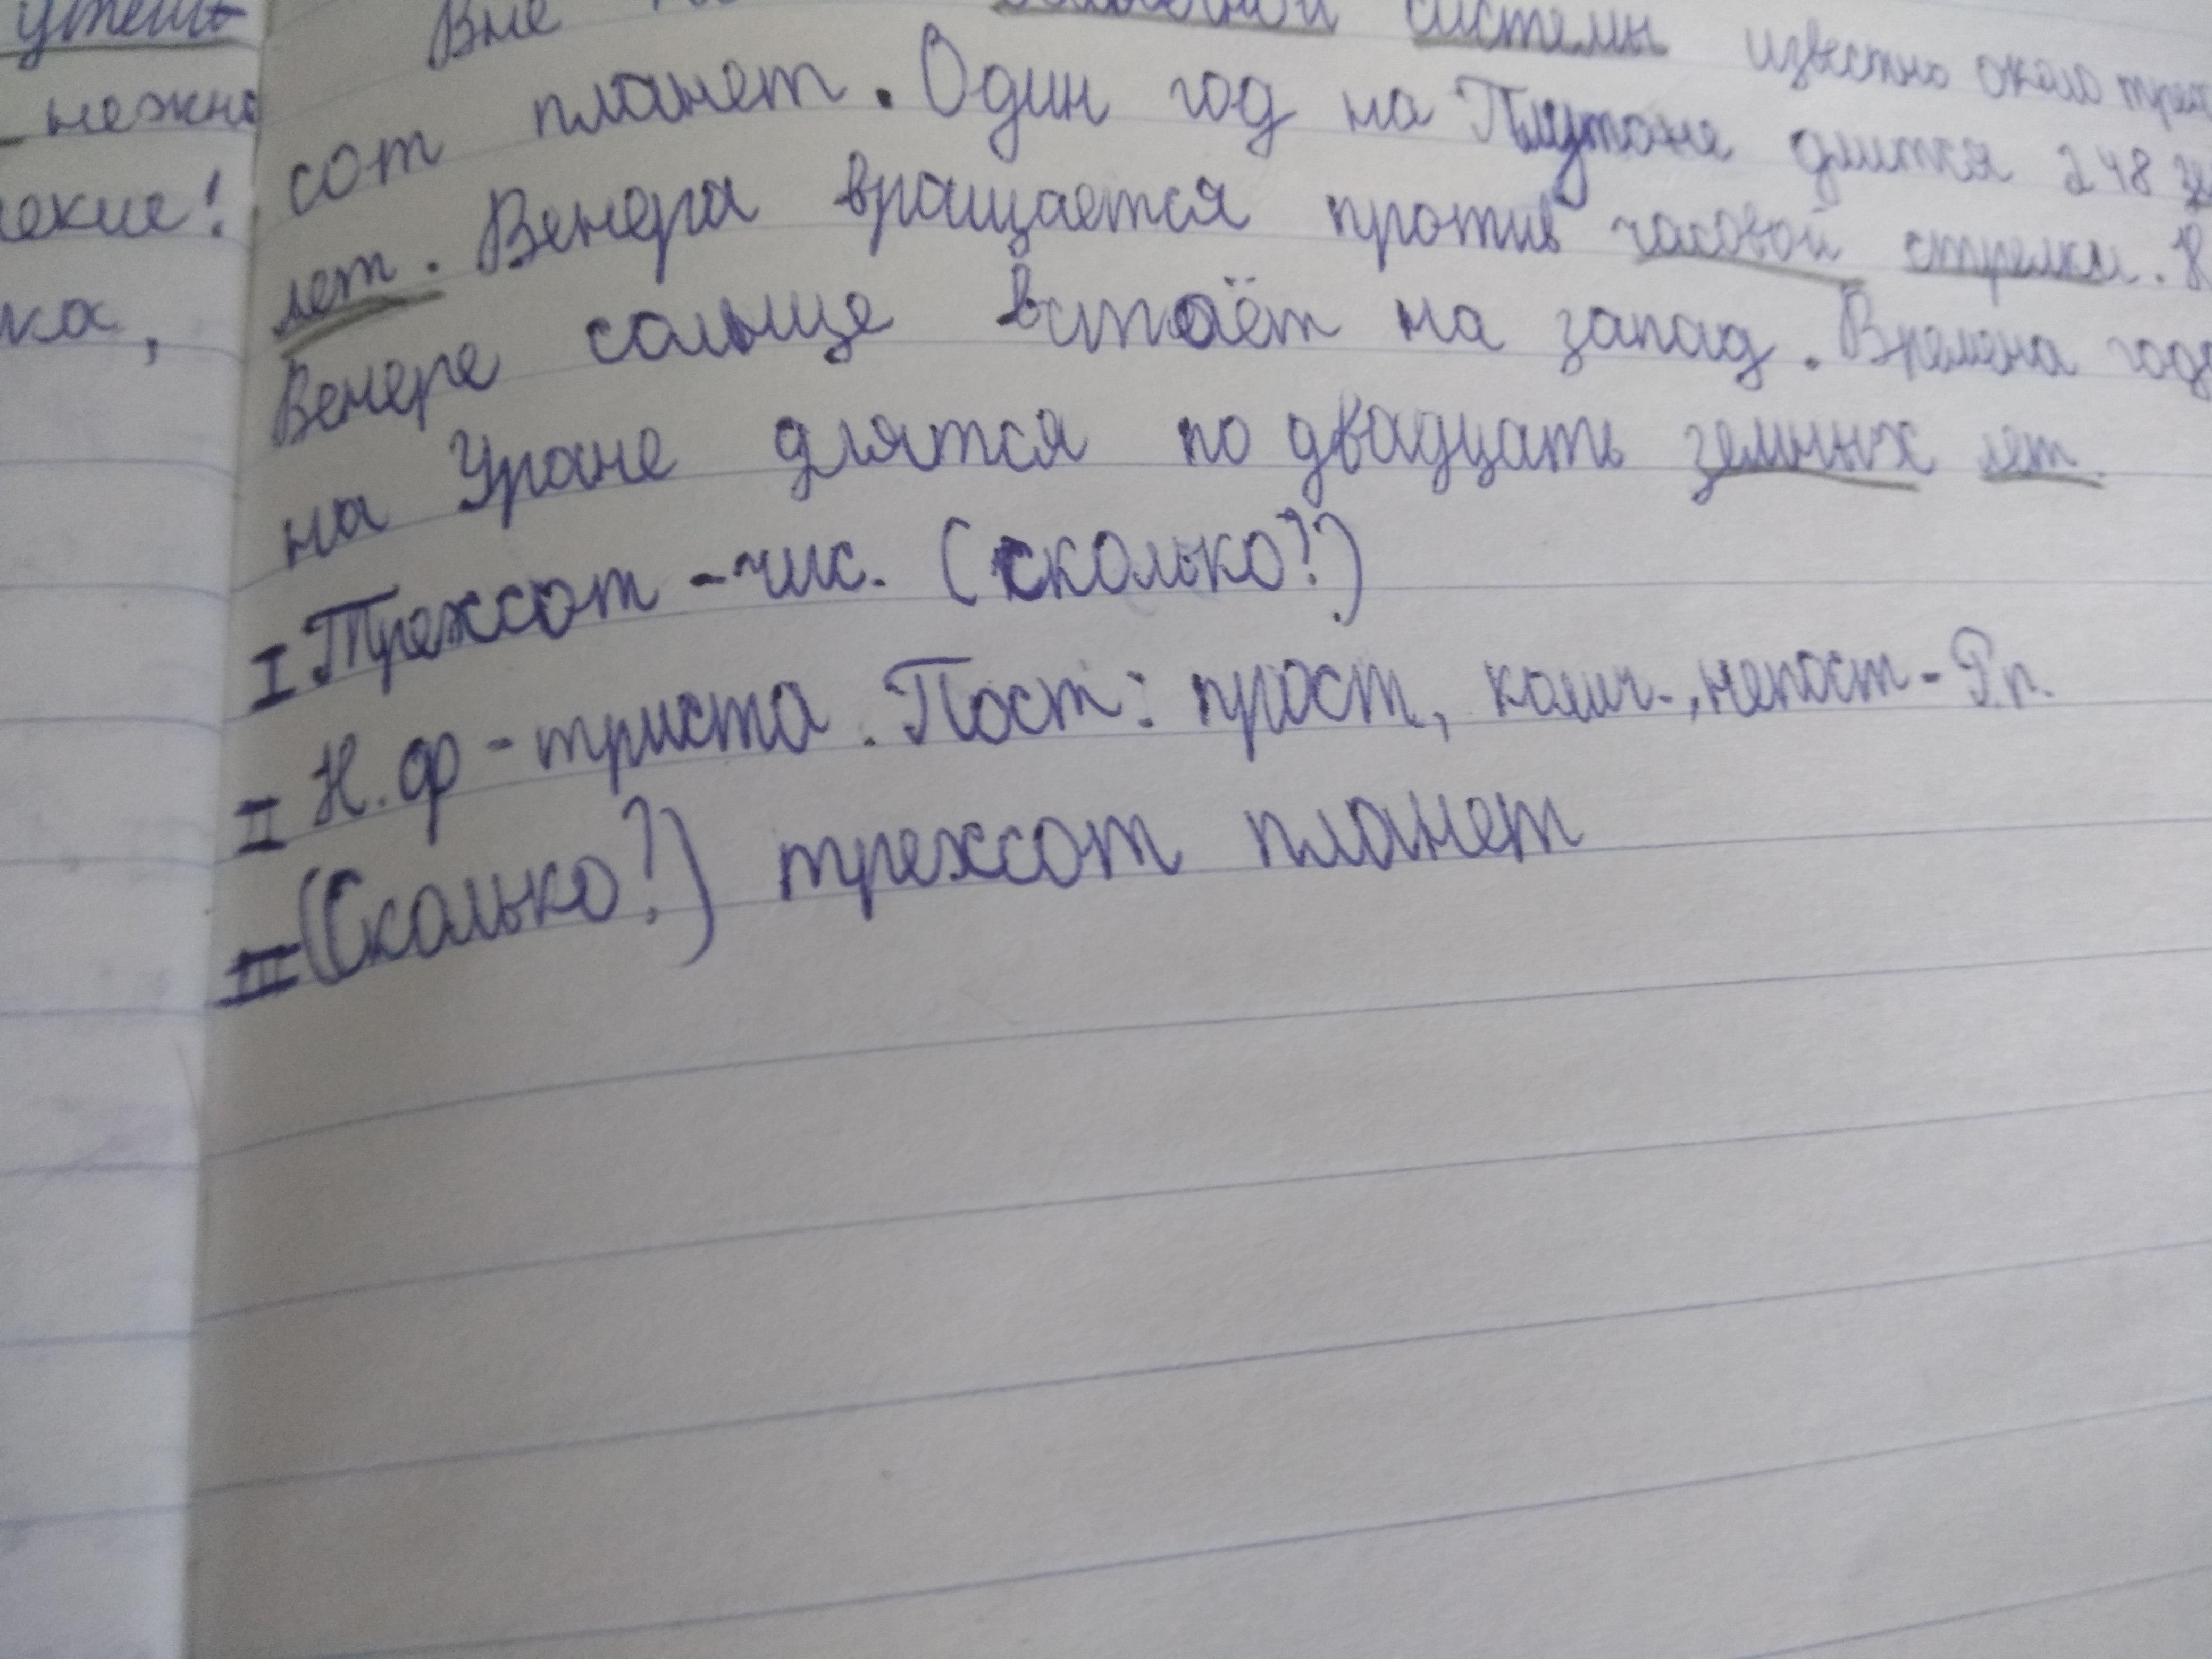 утешь
нежно
ка,
Вне системы известно около трех
сот планет. Один год на Плутоне длится 248 зе
лет. Венера вращается против часовой стрелки. В
Венере сольце встаёт на запад. Времена года
на Уране длятся по двадцать земных лет.
I Трехсот - чис. (сколько?)
II Н. ф - триста. Пост: прост, колич-, непост - Р.п.
III (Сколько?) трехсот планет